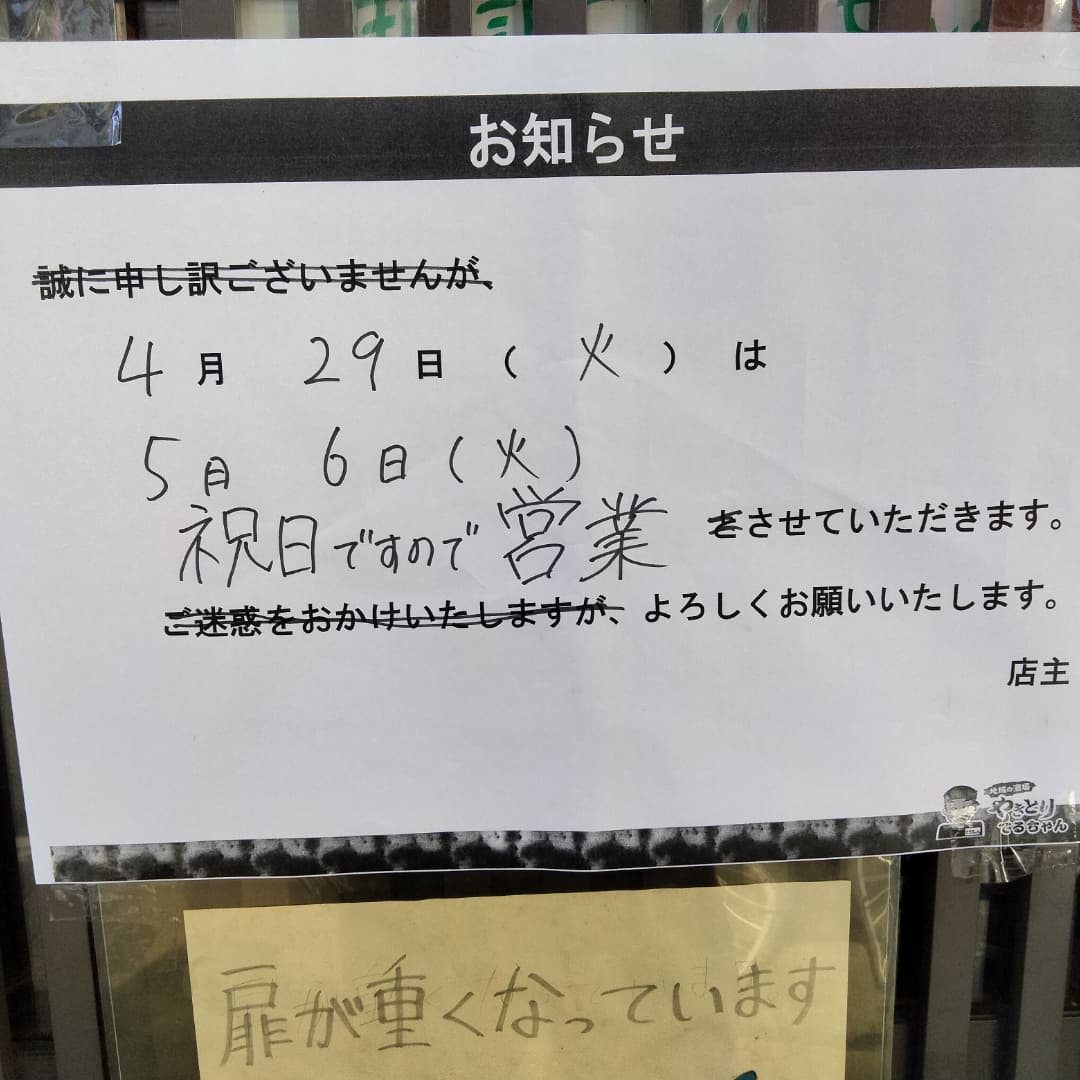 お知らせ
誠に申し訳ございませんが、
4月 29日 ( 火 ) は
5月 6日 (火)
祝日ですので 営業 をさせていただきます。
ご迷惑をおかけいたしますが、よろしくお願いいたします。
店主
地鶏の酒場
やきとり
てるちゃん
扉が重くなっています